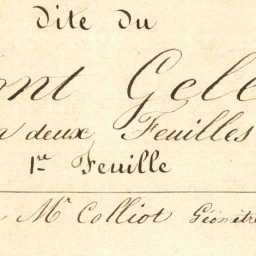 dite du
ont Gele
deux Feuilles
1re Feuille
Mr Colliot Géomètre